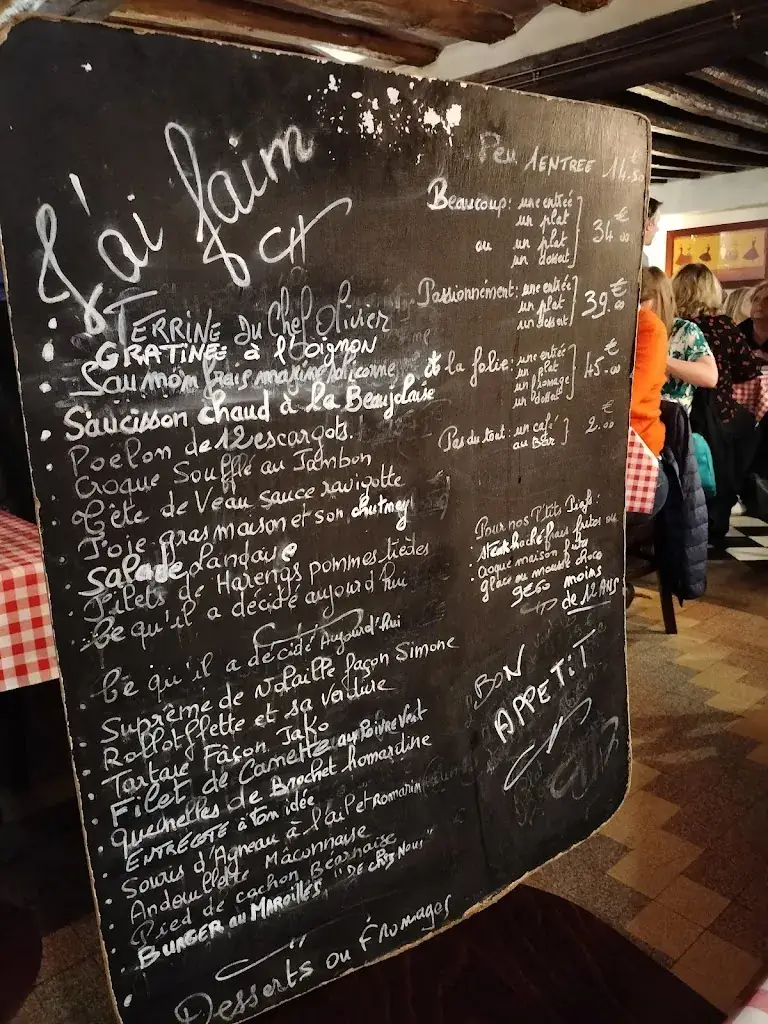 J'ai faim
TERRINE Du Chef Olivier
GRATINÉE à l'oignon
Saumon frais mariné
Saucisson chaud à la Beaujolaise
Poëlon de 12 escargots
Croque Soufflé au Jambon
Tête de Veau sauce ravigotte
Foie gras maison et son chutney
Salade Landaise
Filets de Harengs pommes tièdes
Ce qu'il a décidé aujourd'hui
Ce qu'il a décidé Aujourd'hui
Suprême de volaille façon Simone
et sa verdure
Tartare Façon Jako
Filet de Canette au Poivre Vert
Quenelles de Brochet homardine
ENTRECÔTE à ton idée
Souris d'Agneau à l'ail et Romarin
Andouillette Mâconnaise
Pied de cochon Béarnaise
BURGER au MAROILLES "DE CHEZ Nous"
Desserts ou Fromages
Peu 1 ENTREE 14.€50
Beaucoup: une entrée
un plat
ou un plat
un dessert
34€.00
Passionnément: une entrée
un plat
un dessert
39€.00
A la folie: une entrée
un plat
un fromage
un dessert
45€.00
Pas du tout: un café
au BAR
2€.00
Pour nos P'tits
steak haché frais frites ou
croque maison frites
glace ou mousse choco
9€60 moins
de 12 ANS
BON
APPETIT